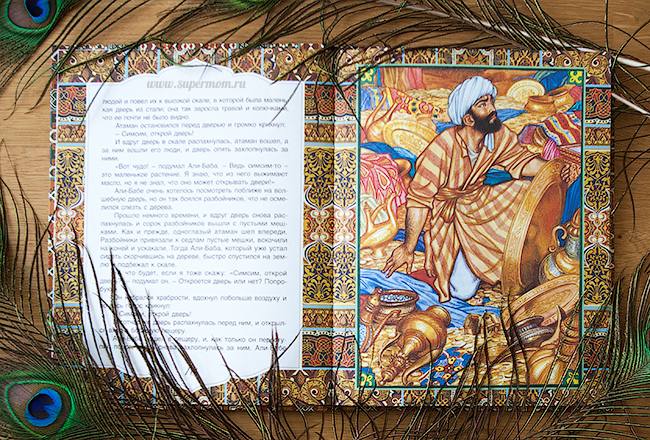 www.supermom.ru
людей и повел их к высокой скале, в которой была малень-
кая дверь из стали; она так заросла травой и колючками,
что ее почти не было видно.
Атаман остановился перед дверью и громко крикнул:
— Симсим, открой дверь!
И вдруг дверь в скале распахнулась, атаман вошел, а
за ним вошли его люди, и дверь опять захлопнулась за
ними.
«Вот чудо! — подумал Али-Баба. — Ведь симсим-то —
это маленькое растение. Я знаю, что из него выжимают
масло, но я не знал, что оно может открывать двери!»
Али-Бабе очень хотелось посмотреть поближе на вол-
шебную дверь, но он так боялся разбойников, что не осме-
лился слезть с дерева.
Прошло немного времени, и вдруг дверь снова рас-
пахнулась и сорок разбойников вышли с пустыми меш-
ками. Как и прежде, одноглазый атаман шел впереди.
Разбойники привязали к седлам пустые мешки, вскочили
на коней и ускакали. Тогда Али-Баба, который уже устал
сидеть скорчившись на дереве, быстро спустился на зем-
лю и подбежал к скале.
что будет, если я тоже скажу: «Симсим, открой
дверь — подумал он. — Откроется дверь или нет? Попро-
Он набрался храбрости, вдохнул побольше воздуху и
крикнул:
— Симсим, открой дверь!
дверь распахнулась перед ним, и открыл-
пещеру.
пещеру, и, как только он пересту-
захлопнулась за ним. Али-Бабе